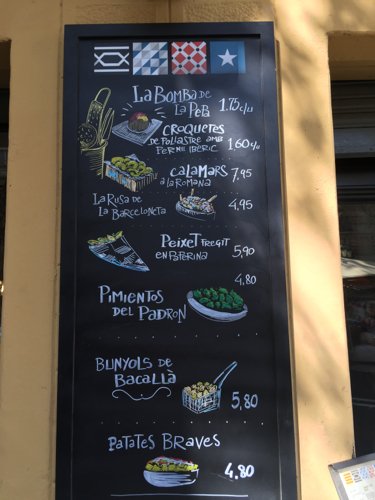 La Bomba de
La Pepa 1.75 c/u
Croquetes
de pollastre amb
pernil ibèric 1,60 c/u
Calamars
a la romana 7,95
La Rusa de
La Barceloneta 4,95
Peixet fregit
en paperina 5,90
4,80
Pimientos
del Padron
Bunyols de
Bacallà
5,80
Patates Braves
4,80